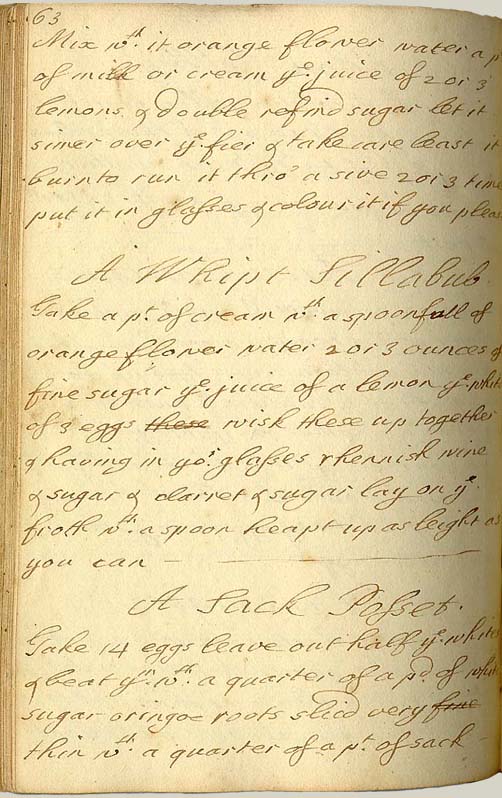 63
Mix wth it orange flower water a p
of milk or cream ye juice of 2 or 3
lemons & double refind sugar let it
simer over ye fier & take care least it
burn to run it thro' a sive 2 or 3 time
put it in glasses & colour it if you pleas
A Whipt Sillabub
Take a pt of cream wth a spoonfull of
orange flower water 2 or 3 ounces of
fine sugar ye juice of a lemon ye white
of 3 eggs these wisk these up together
& having in yor glasses rhennish wine
& sugar & clarret & sugar lay on ye
froth wth a spoon heapt up as leight as
you can
A Sack Posset.
Take 14 eggs leave out half ye whites
& beat ym wth a quarter of a pd of white
sugar oringoe roots slicd very fine
thin wth a quarter of a pt of sack